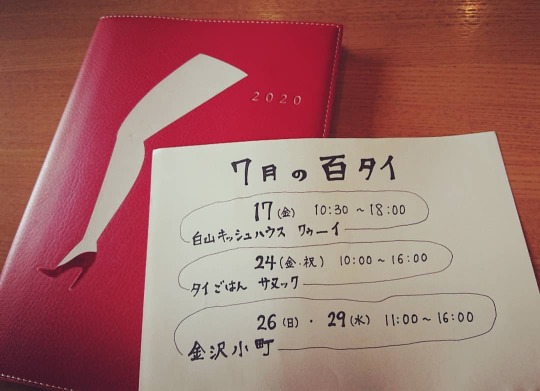 2020
7月の百タイ
17(金) 10:30 ~ 18:00
白山キッシュハウス ワゥーイ
24(金・祝) 10:00 ~ 16:00
タイごはん サヌック
26(日)・29(水) 11:00 ~ 16:00
金沢小町